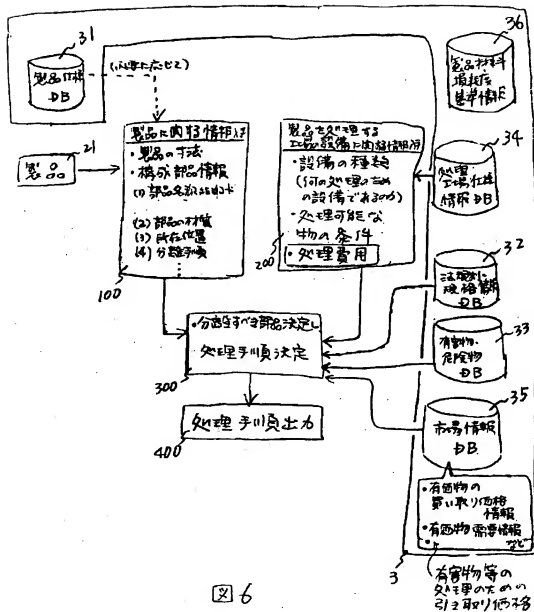 31
製品仕様
DB
(必要に応じて)
36
製品材料
基準情報
21
製品
製品に関する情報入手
・製品の寸法
・構成部品情報
(1) 部品名称
(2) 部品の材質
(3) 所在位置
(4) 分離手順
100
製品を処理する
工場設備に関する情報入手
・設備の種類
(何の処理のため
の設備であるのか)
・処理可能な
物の条件
・処理費用
200
34
処理
工場仕様
情報DB
32
DB
33
有害物、
危険物
DB
35
市場情報
DB
・分離すべき部品決定し
処理手順決定
300
処理手順出力
400
・有価物の
買い取り価格
情報
・有価物需要情報
など
3
有害物等の
処理のための
引き取り価格
図6